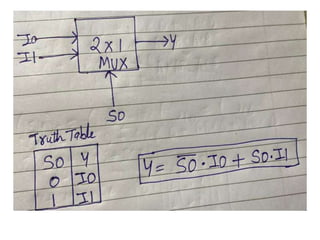 I0
I1
2x1
MUX
Y
S0
Truth Table
S0 Y
0 I0
1 I1
Y = S̅0̅·I0 + S0·I1